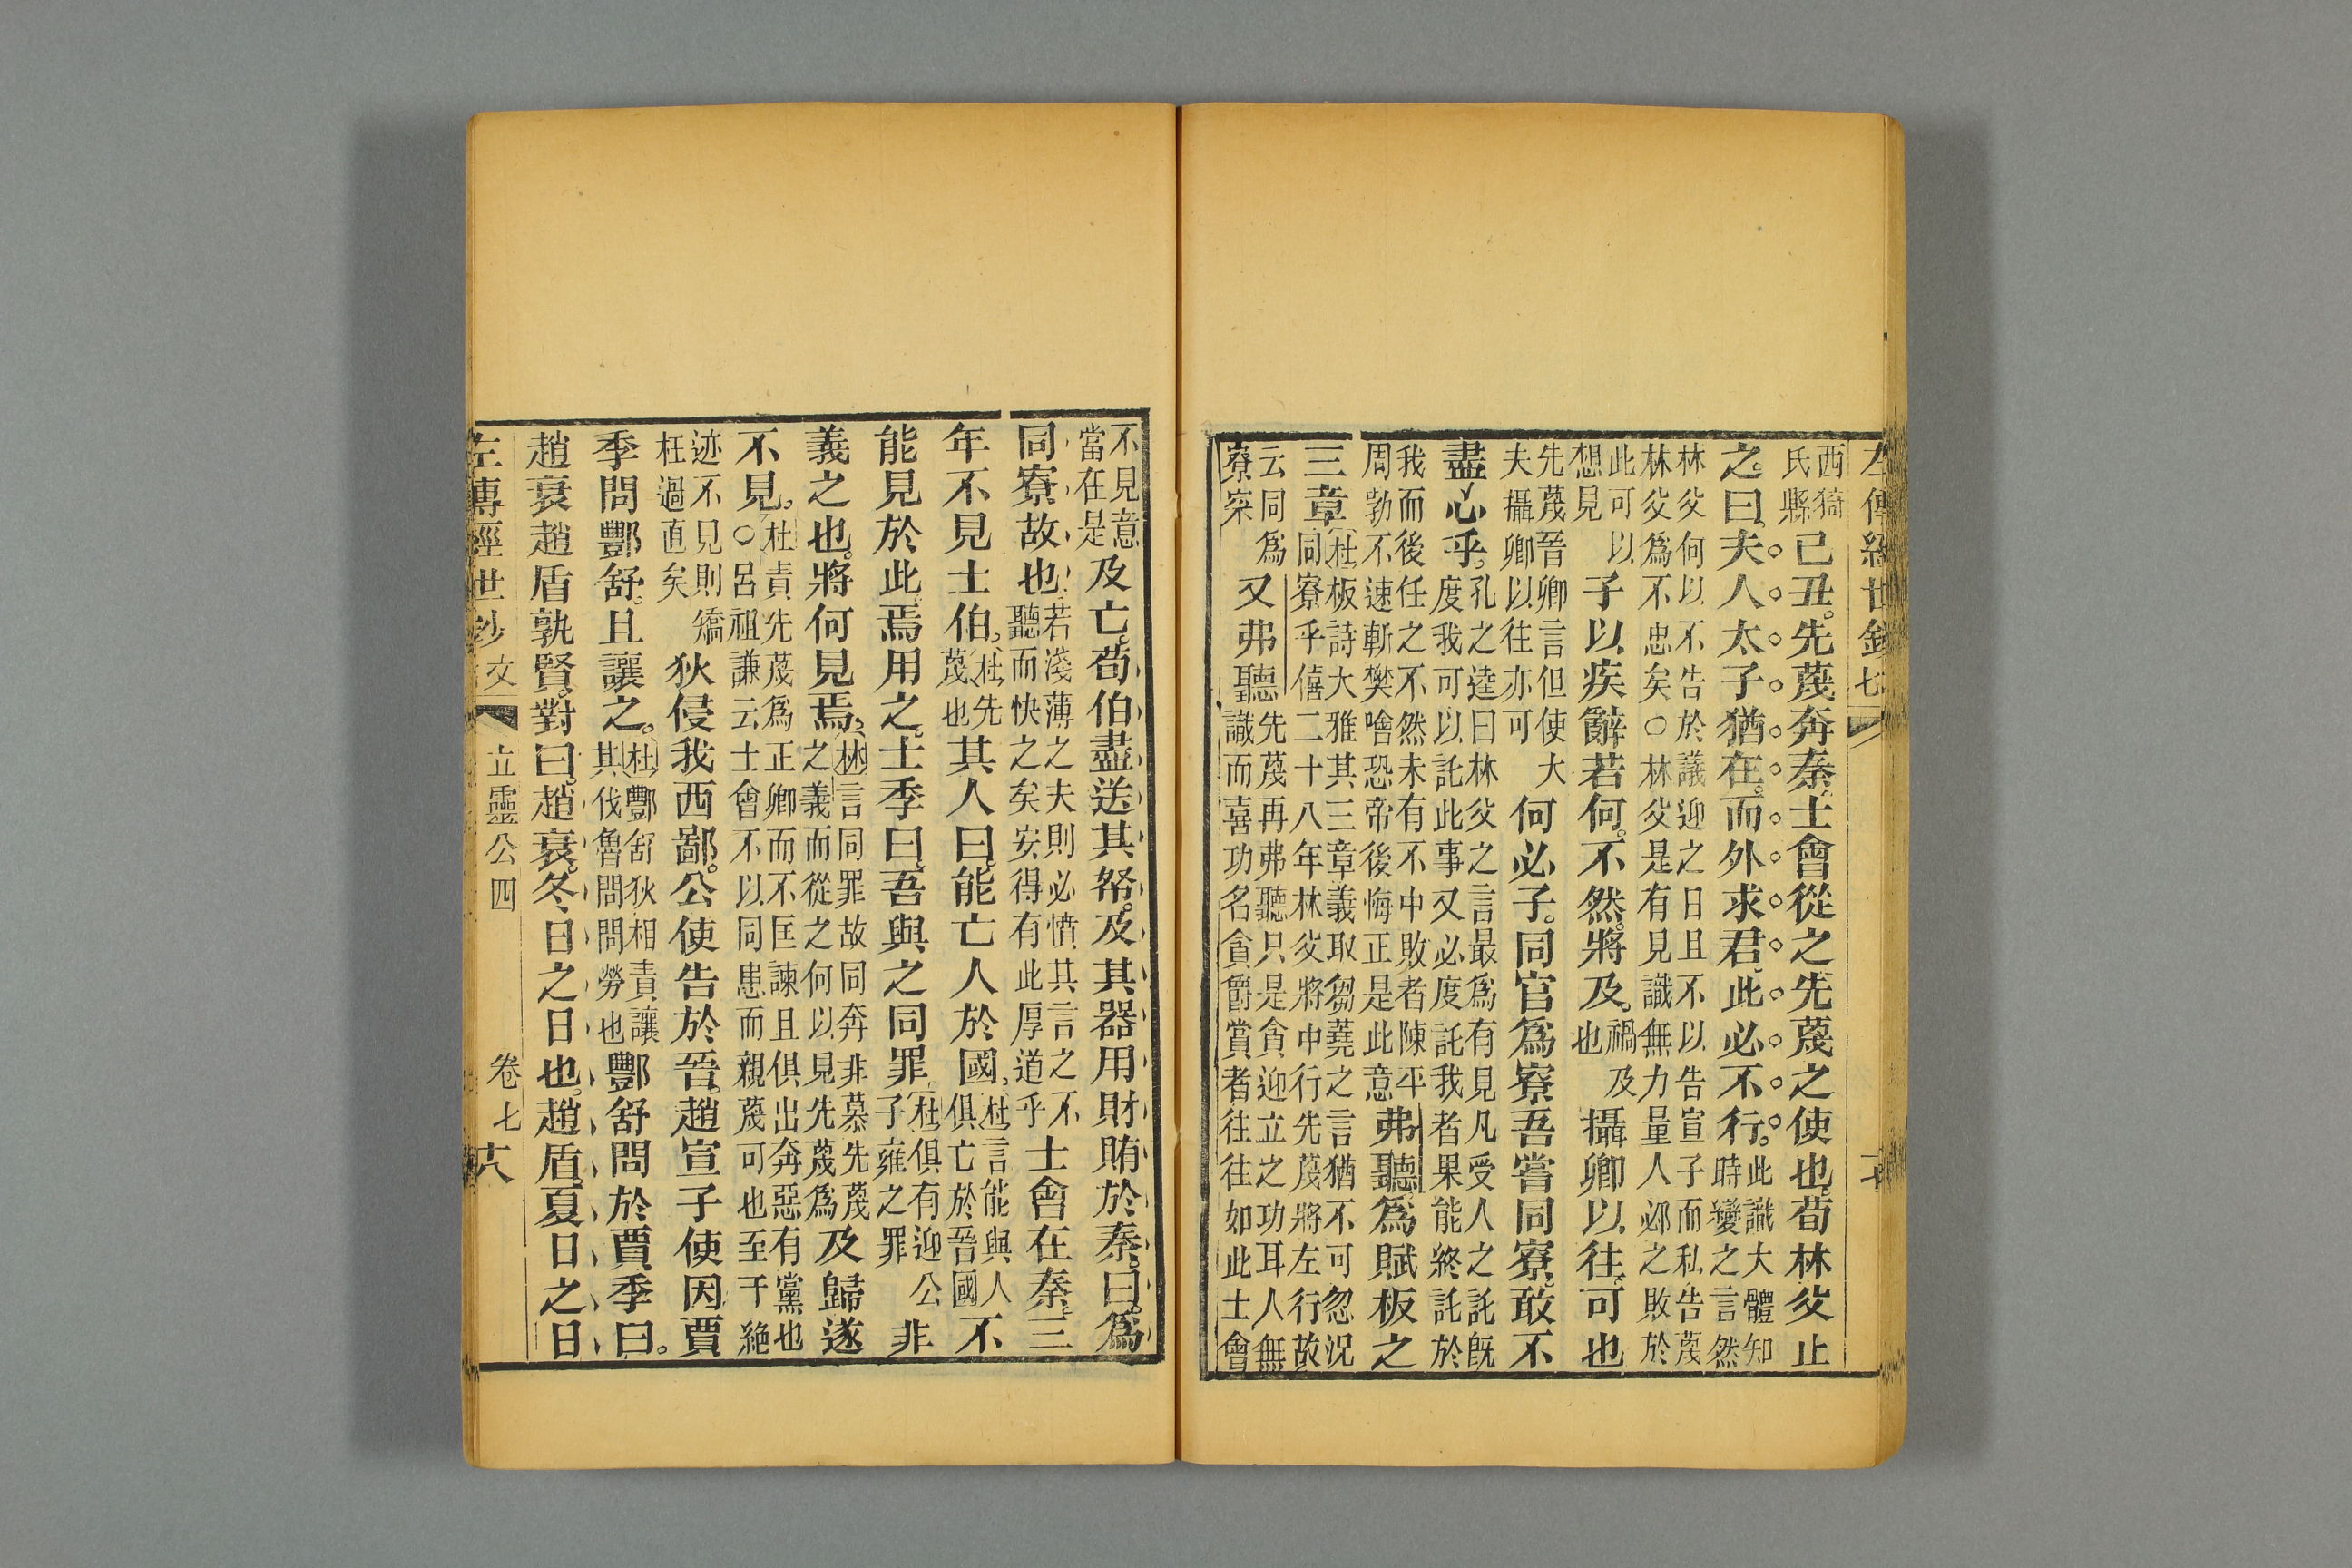 左傳經世鈔 七
西猗氏縣己丑。先蔑奔秦。士會從之先蔑之使也。荀林父止
之。曰。夫人太子猶在。而外求君。此必不行。此識大體知時變之言然
林父何以不告於議迎之日且不以告宣子而私告蔑林父爲不忠矣○林父是有見識無力量人邲之敗於
此可以想見子以疾辭若何。不然。將及。禍及也攝卿以往。可也
先蔑晉卿言但使大夫攝卿以往亦可何必子。同官爲寮吾嘗同寮。敢不
盡心乎。孔之逵曰林父之言最爲有見凡受人之託旣度我可以託此事又必度託我者果能終託於
我而後任之不然未有不中敗者陳平周勃不速斬樊噲恐帝後悔正是此意弗聽。爲賦板之
三章杜板詩大雅其三章義取芻蕘之言猶不可忽況同寮乎僖二十八年林父將中行先蔑將左行故
云同爲寮寀又弗聽先蔑再弗聽只是貪迎立之功耳人無識而喜功名貪爵賞者往往如此士會
不見意當在是及亡。荀伯盡送其帑。及其器用財賄於秦。曰。爲
同寮故也若淺薄之夫則必憤其言之不聽而快之矣安得有此厚道乎士會在秦。三
年不見士伯。杜先蔑也其人曰。能亡人於國。杜言能與人俱亡於晉國不
能見於此。焉用之。士季曰。吾與之同罪。杜俱有迎公子雍之罪非
義之也。將何見焉。林言同罪故同奔非慕先蔑之義而從之何以見先蔑爲及歸遂
不見。杜責先蔑爲正卿而不匡諫且俱出奔惡有黨也○呂祖謙云士會不以同患而親蔑可也至干絶
迹不見則矯枉過直矣狄侵我西鄙。公使告於晉。趙宣子使因賈
季問酆舒。且讓之。杜酆舒狄相責讓其伐魯問問勞也酆舒問於賈季曰。
趙衰趙盾孰賢。對曰。趙衰。冬日之日也。趙盾。夏日之日
左傳經世鈔 文 立靈公四 卷七 十八